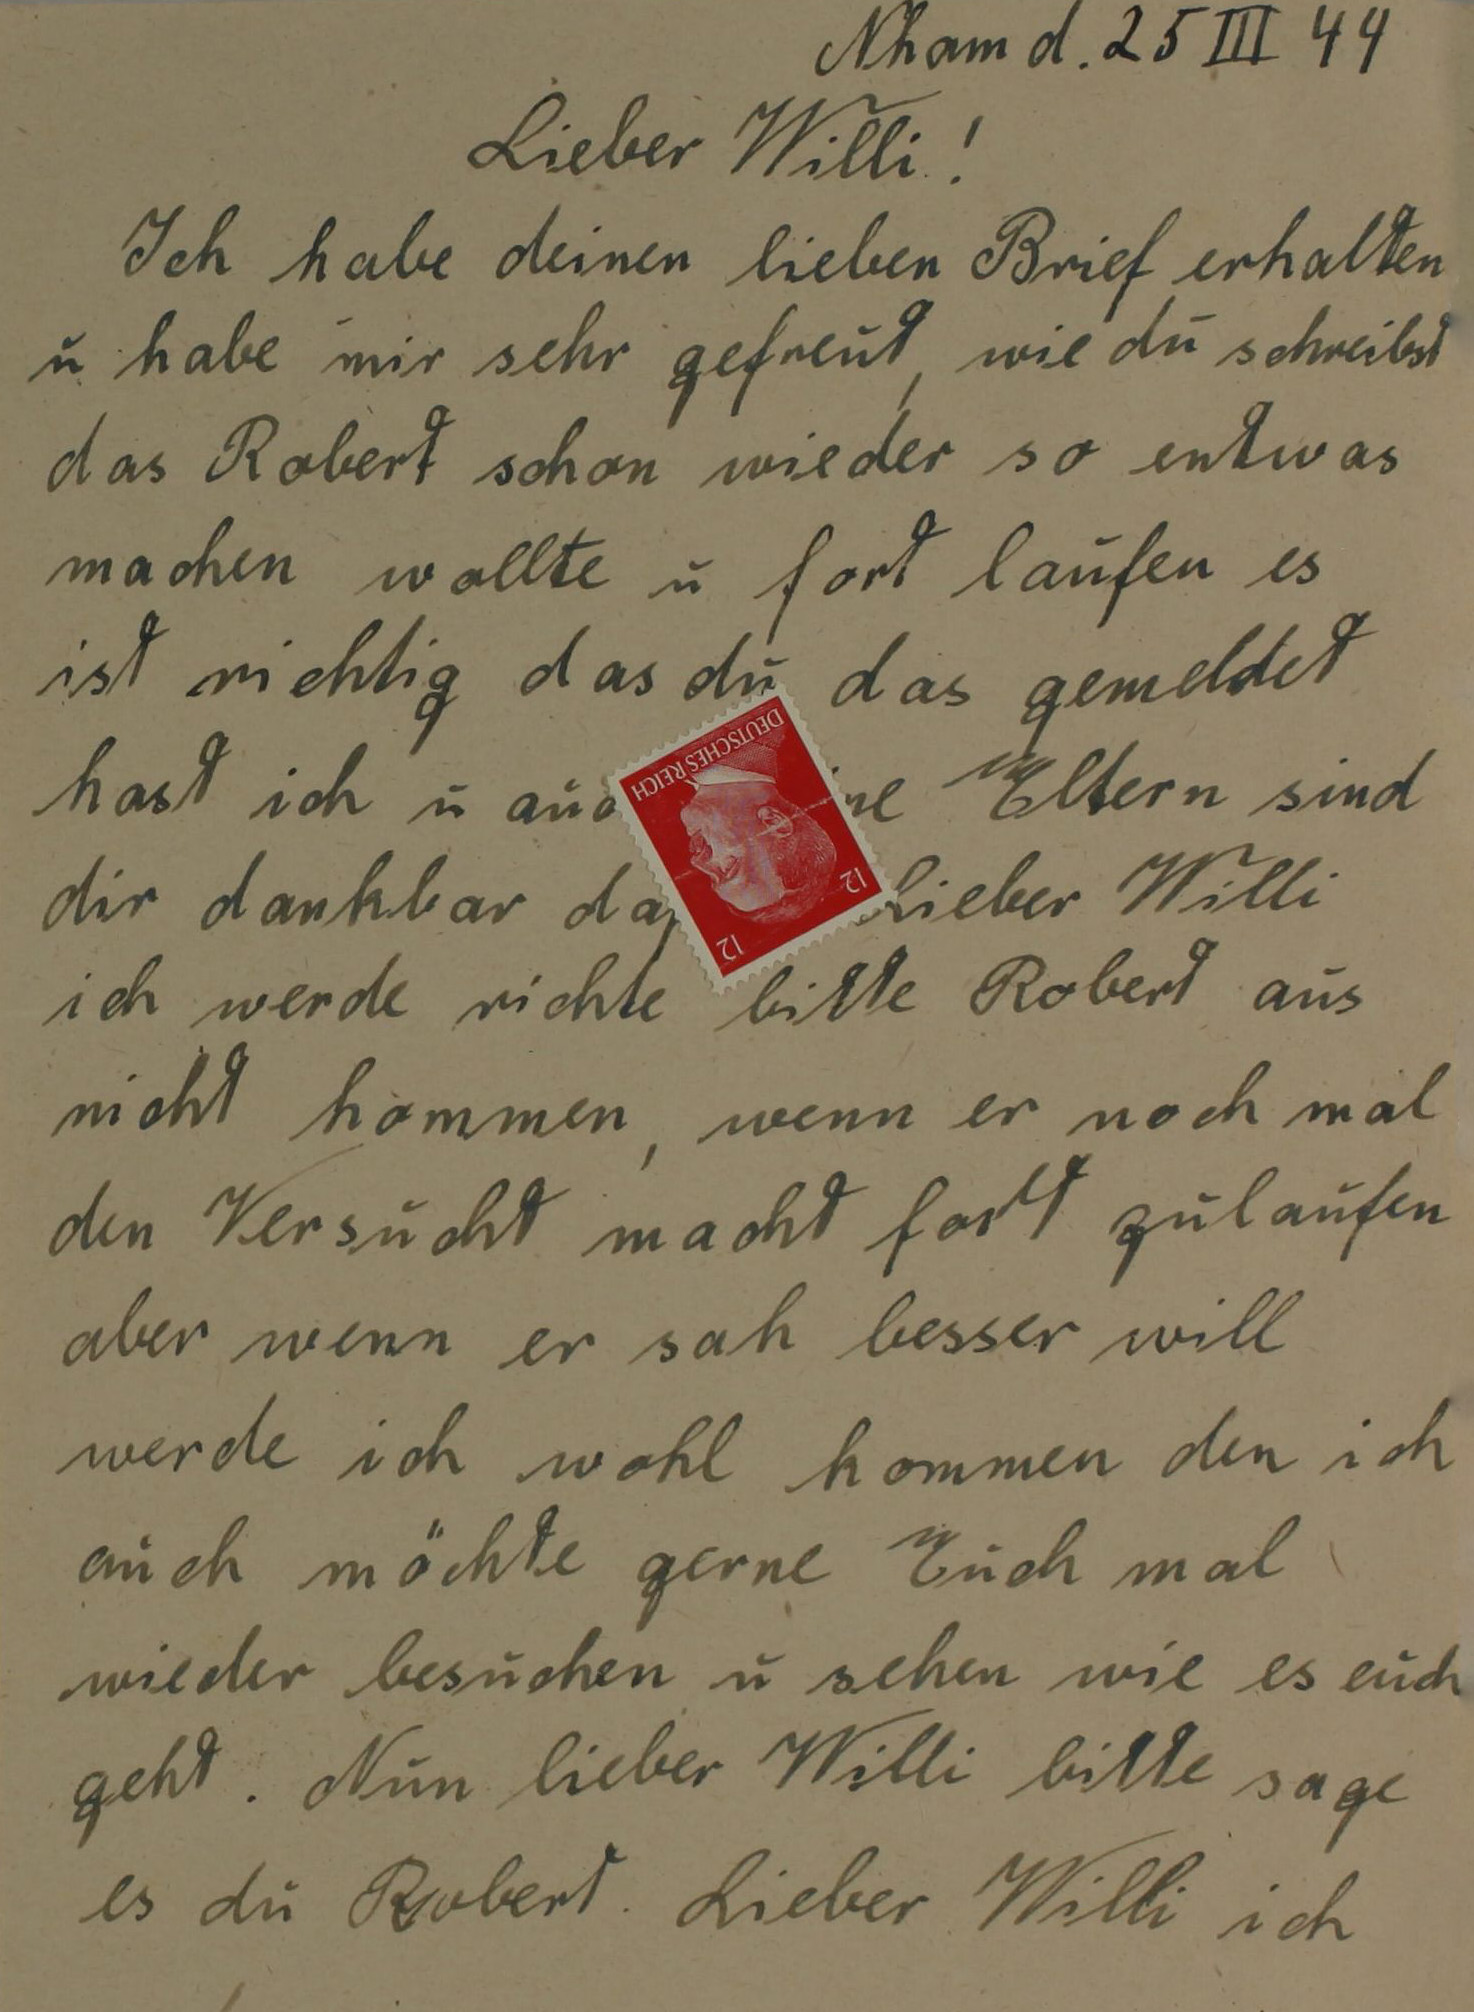 Nham d. 25 III 44
Lieber Willi!
Ich habe deinen lieben Brief erhalten
ü habe mir sehr gefreut, wie du schreibst
das Robert schon wieder so entwas
machen wollte ü fort laufen es
ist richtig das du das gemeldet
hast ich ü Eltern sind
dir dankbar Lieber Willi
DEUTSCHES REICH
12 12
ich werde richte bitte Robert aus
nicht kommen, wenn er noch mal
den Versucht macht fort zulaufen
aber wenn er sah besser will
werde ich wohl kommen den ich
auch möchte gerne Euch mal
wieder besuchen ü sehen wie es euch
geht. Nun lieber Willi bitte sage
es du Robert. Lieber Willi ich